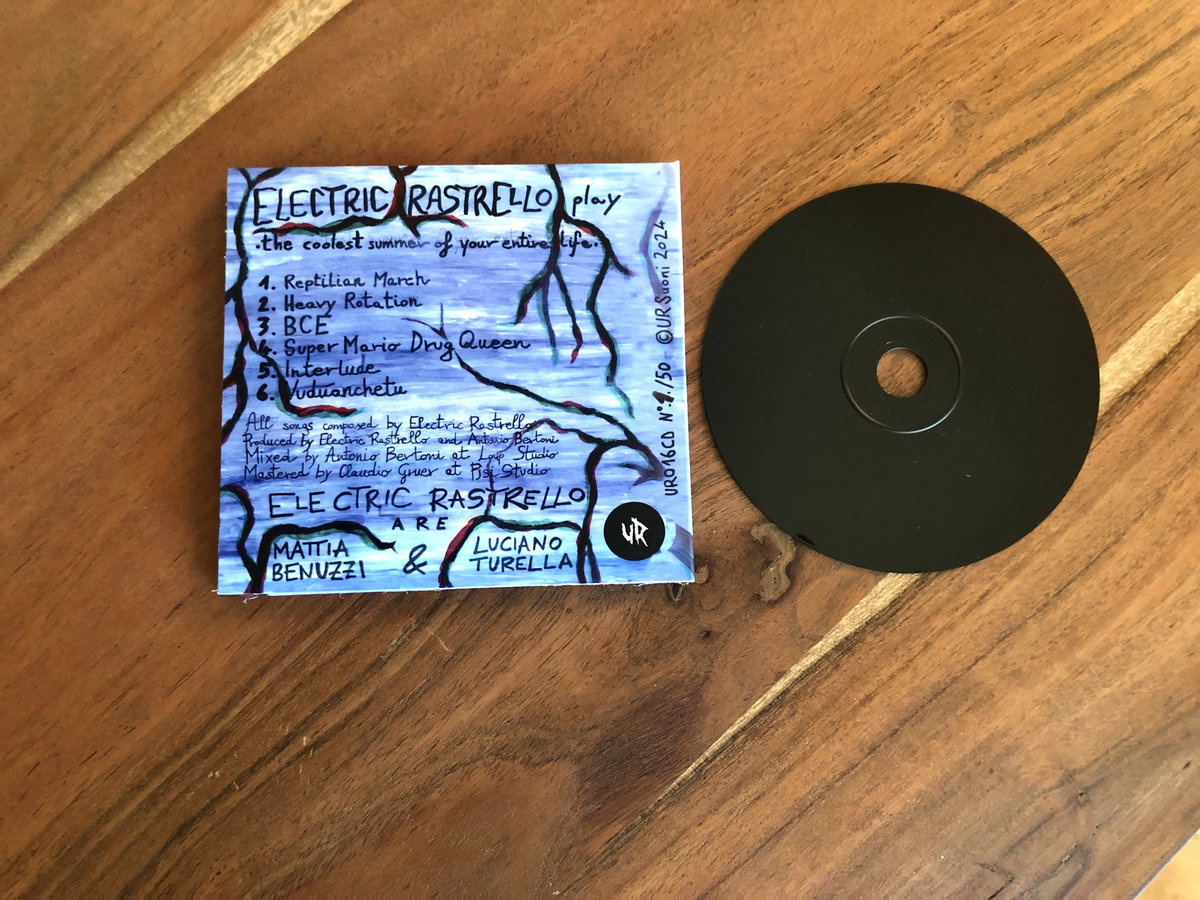 ELECTRIC RASTRELLO play
.the coolest summer of your entire life.
1. Reptilian March
2. Heavy Rotation
3. BCE
4. Super Mario Drug Queen
5. Interlude
6. Vuduanchetu
All songs composed by Electric Rastrello
Produced by Electric Rastrello and Antonio Bertoni
Mixed by Antonio Bertoni at Loup Studio
Mastered by Claudio Gruer at Pisi Studio
ELECTRIC RASTRELLO
ARE
MATTIA
BENUZZI
&
LUCIANO
TURELLA
UR
UR016CD N°:1./50 ©URSuoni 2024